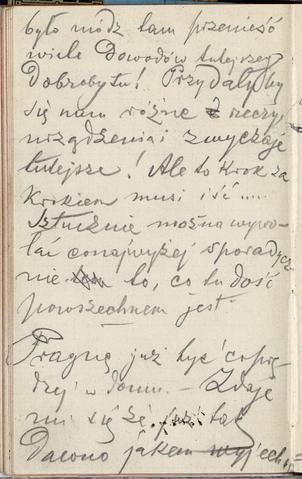 było módz tam przenieść
wiele Dowodów tutejszej
Dobrobytu! Przydałyby
się nam różne rzeczy,
urządzenia i zwyczaje
tutejsze! Ale to Krok za
Krokiem musi iść.....
Sztucznie można wywo-
łać conajwyżej sporadycz-
nie to, co tu dość
powszechnem jest.
Pragnę już być coprę-
dzej w domu. - Zdaje
mi się że już tak
Dawno jakem wyjechał